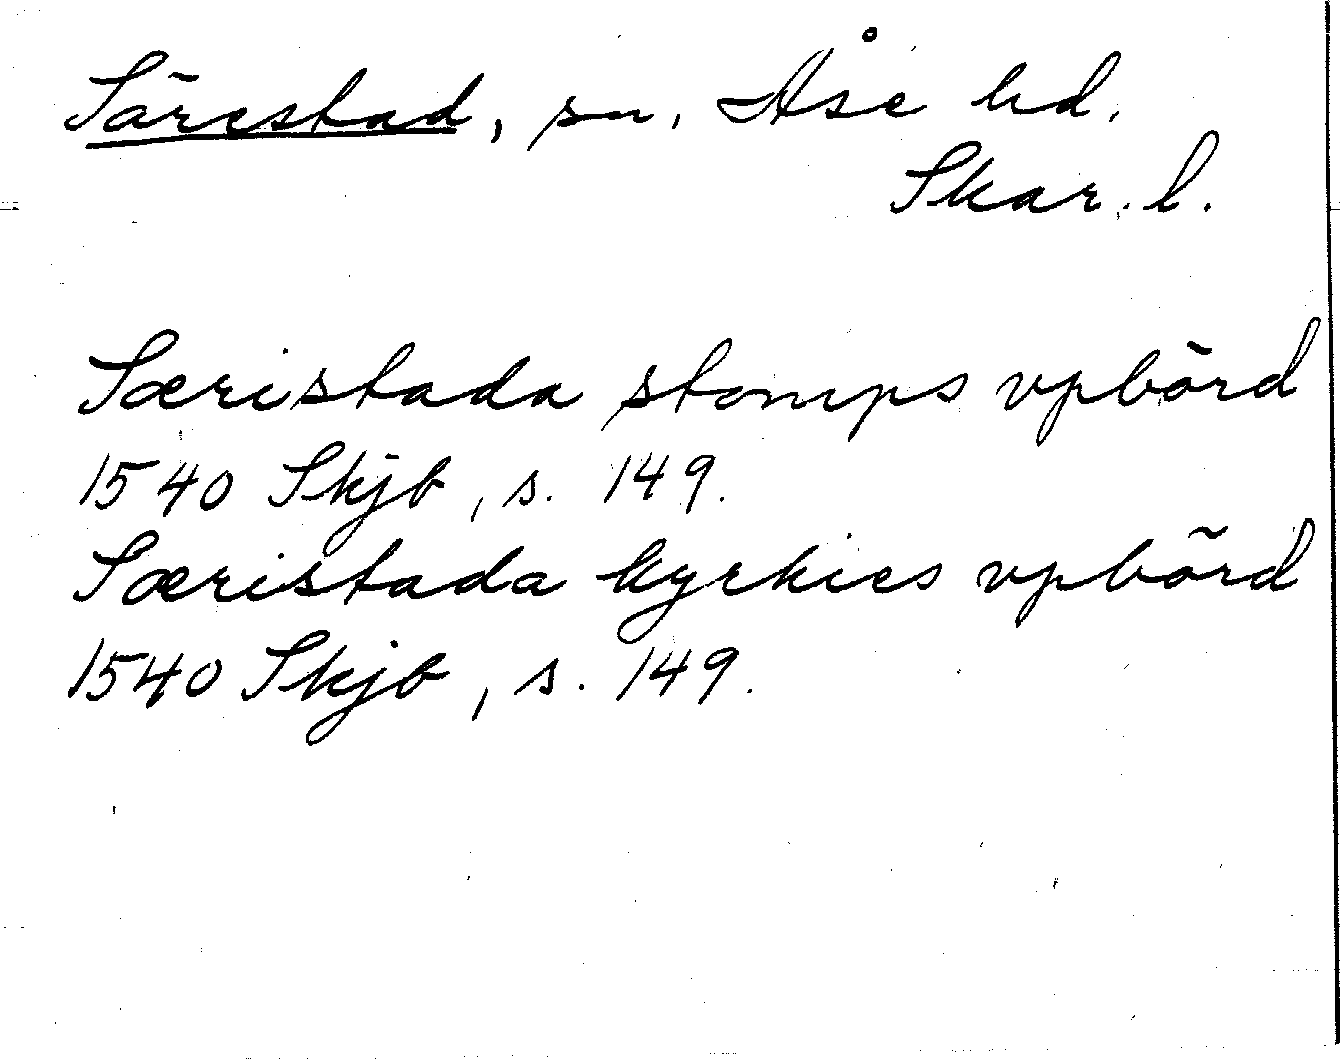 Särestad, sn, Åse hd.
Skar. l.
Særistada stomps vpbörd
1540 Skjb, s. 149.
Særistada kyrkies vpbörd
1540 Skjb, s. 149.